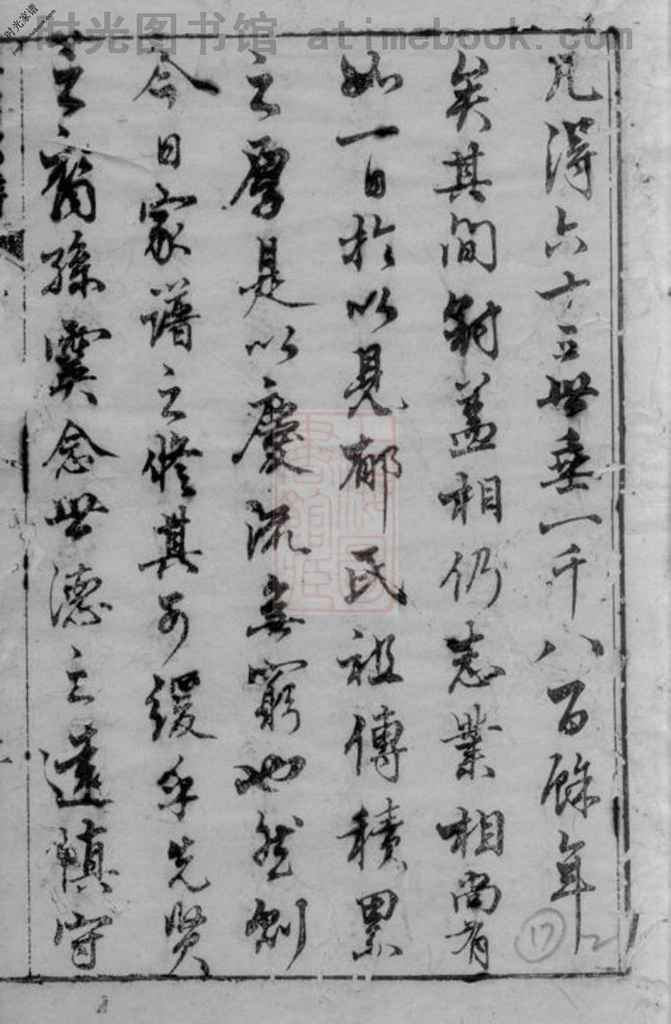 时光图书馆 atimebook.com
时光家谱
凡得六十三世垂一千八百餘年
矣其间簪盖相仍志業相尚有
如一日於以見郁氏祖傳積累
之厚是以慶流無窮也然則
今日家譜之修其可緩乎先贤
之裔孫奕念世德之遠慎守
17